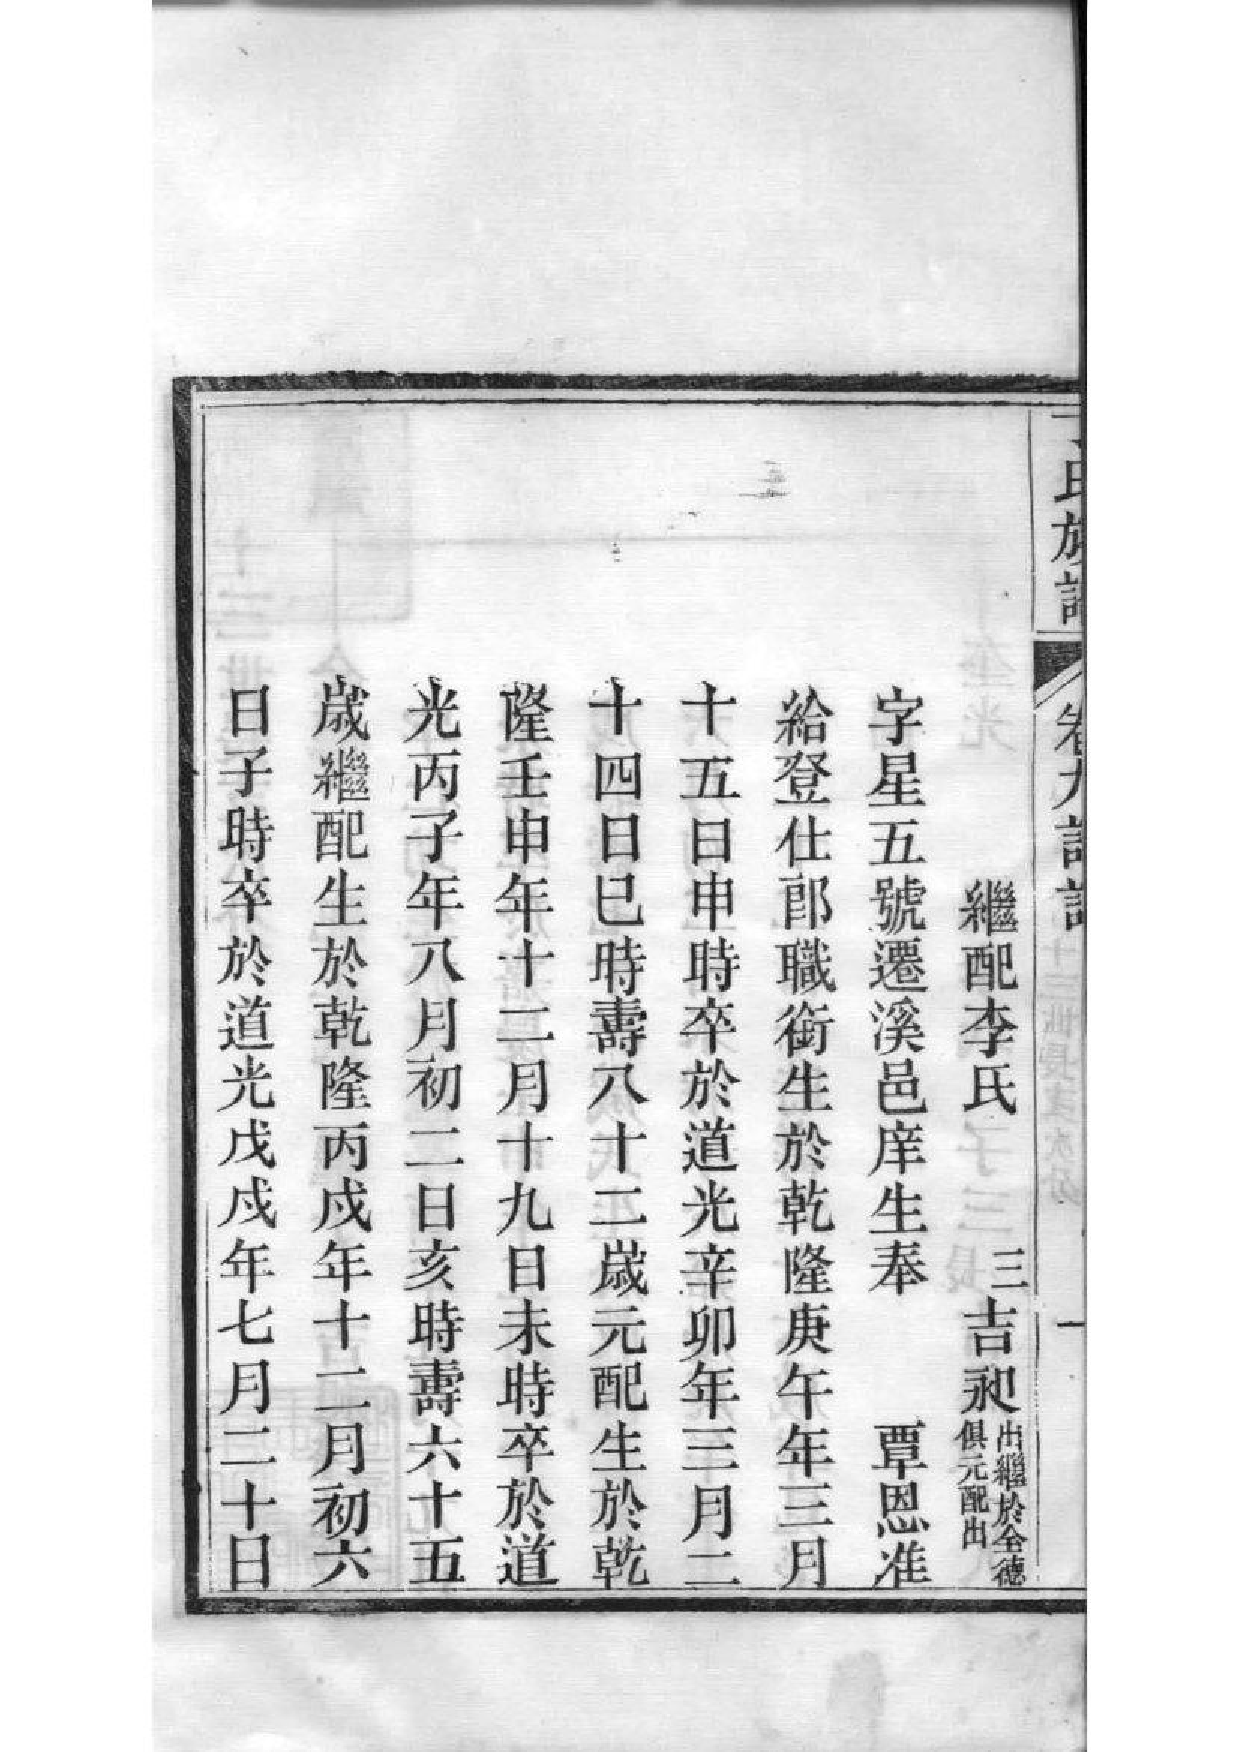 氏族譜
卷九
繼配李氏
三吉昶
出繼於全德
俱元配出
字星五號遷溪邑庠生奉 覃恩准
給登仕郎職銜生於乾隆庚午年三月
十五日申時卒於道光辛卯年三月二
十四日巳時壽八十二歲元配生於乾
隆壬申年十二月十九日未時卒於道
光丙子年八月初二日亥時壽六十五
歲繼配生於乾隆丙戌年十二月初六
日子時卒於道光戊戌年七月二十日